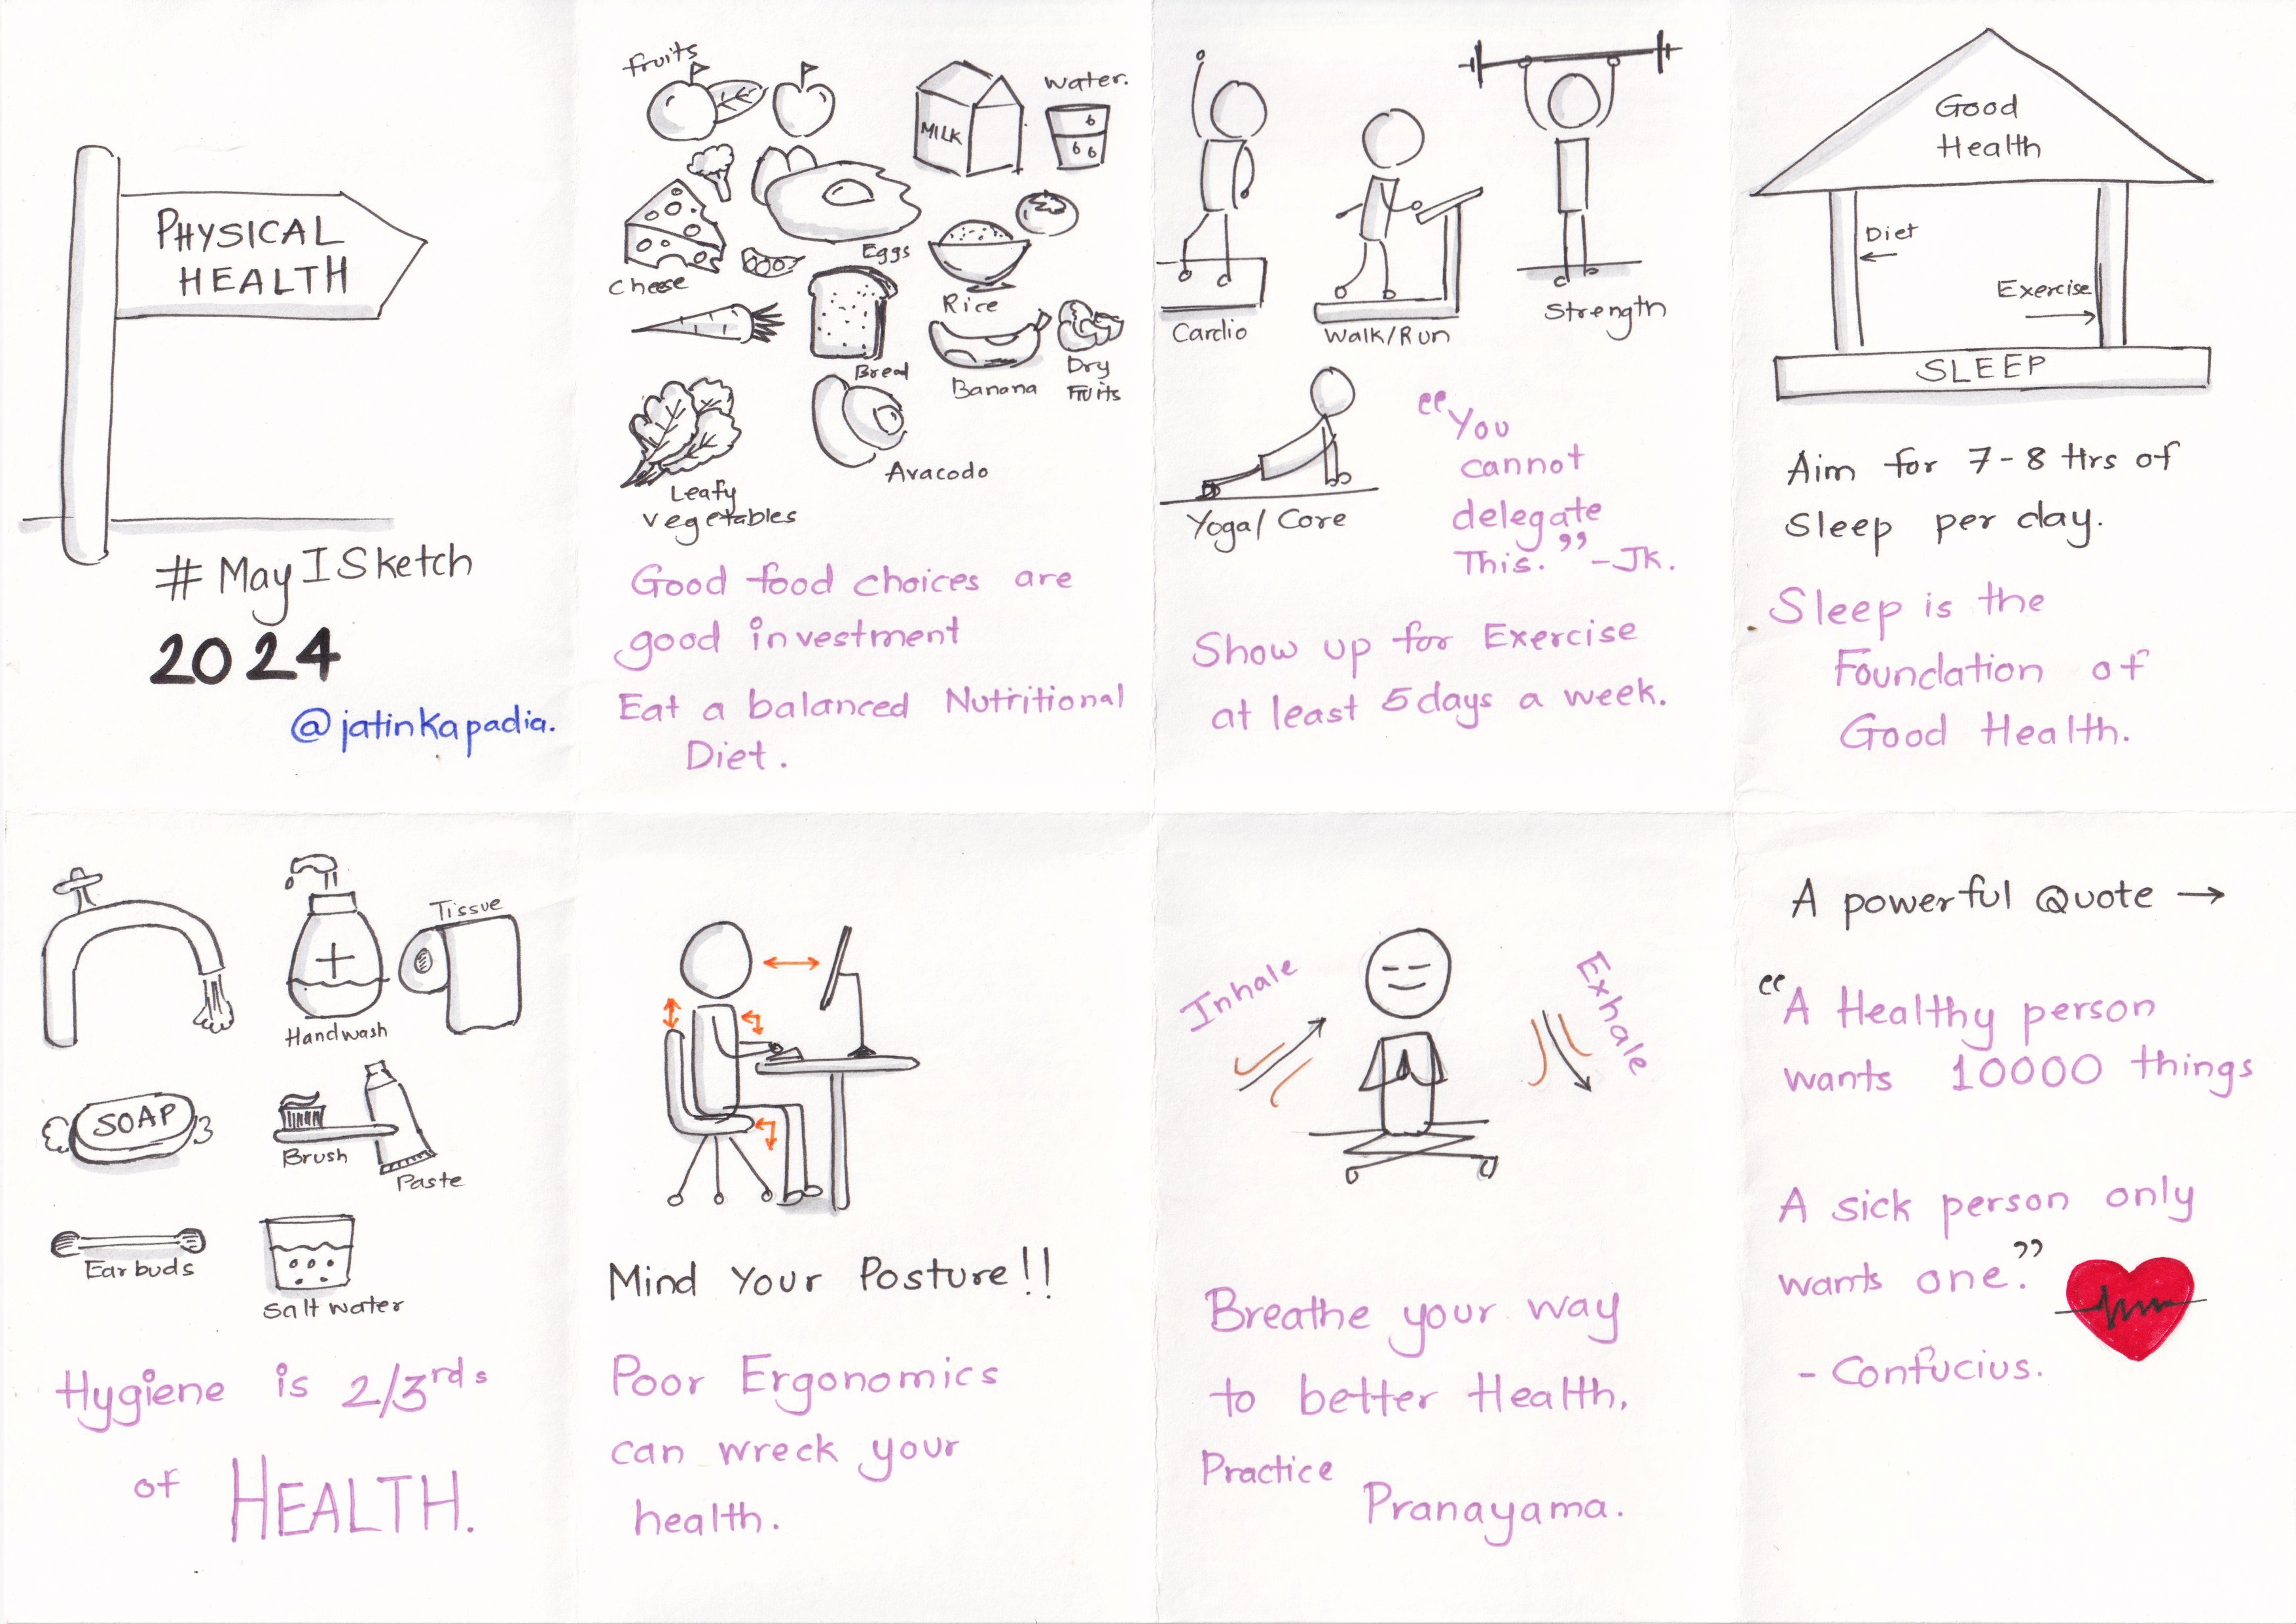 PHYSICAL
HEALTH
#MayISketch
2024
@jatinkapadia.
fruits
MILK
water.
cheese
Eggs
Rice
Bread
Banana
Dry
Fruits
Leafy
vegetables
Avacodo
Good food choices are
good investment
Eat a balanced Nutritional
Diet.
Cardio
Walk/Run
Strength
Yoga/ Core
“You
cannot
delegate
This.” -JK.
Show up for Exercise
at least 5 days a week.
Good
Health
Diet
Exercise
SLEEP
Aim for 7-8 Hrs of
Sleep per day.
Sleep is the
Foundation of
Good Health.
Handwash
Tissue
SOAP
Brush
Paste
Earbuds
Salt water
Hygiene is 2/3rds
of HEALTH.
Mind Your Posture!!
Poor Ergonomics
can wreck your
health.
Inhale
Exhale
Breathe your way
to better Health.
Practice
Pranayama.
A powerful Quote →
“A Healthy person
wants 10000 things
A sick person only
wants one.”
- Confucius.